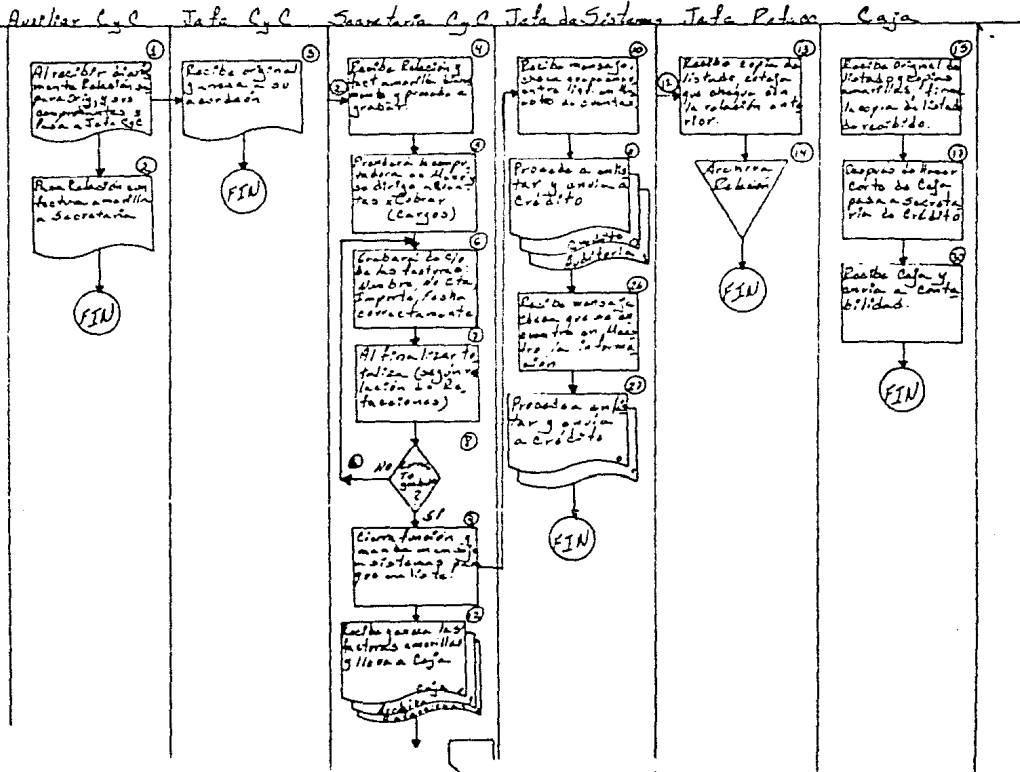 Auxiliar CyC
Jefe CyC
Secretaria CyC
Jefe de Sistemas
Jefe
Caja
1
Al recibir diaria
mente Relación se
para Orig. y sus
comprobantes y
Pasa a Jefe CyC
2
Pasa Relación con
factura amarilla
a Secretaria
FIN
3
Recibe original
y anexa a su
FIN
4
Recibe Relación y
fact. amarilla
y procede a
grabar.
Prenderá
se dirige a
tas x Cobrar
(Cargos)
6
Grabará
de las facturas:
Nombre, No Cta,
Importe, Fecha
correctamente
7
Al finalizar to
taliza (según re
lación de Re
facciones)
8
NO
?
SI
9
Cierra función y
manda mensaje
a sistemas para
que enliste.
12
Recibe y anexa las
facturas amarillas
y lleva a Caja
Caja
10
Recibe mensaje,
Procede a enlis
tar y envía a
Crédito
Crédito
Auditoría
Recibe mensaje
checa que se en
cuentre en Maes
tro la informa
ción
Procede a enlis
tar y envía
a crédito
FIN
13
Recibe copia de
listado, coteja
que cheque con
la relación ante
rior.
14
Archiva
Relación
FIN
15
Recibe Original de
listado y copias
amarillas, firma
la copia de listado
de recibido.
Después de Hacer
Corte de Caja
pasa a Secreta
ria de Crédito
Recibe Caja y
envía a Conta
bilidad.
FIN